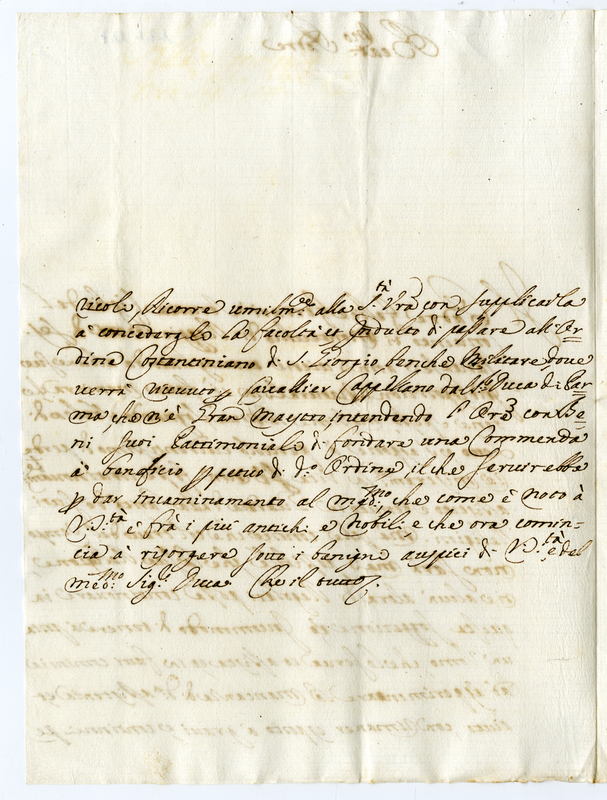 ricolo, Ricorre umilm.te alla S.tà Vra, con supplicarla
à concedergle la facoltà, et Indulto di passare all'Or=
dine Costantiniano di S. Giorgio, benche Militare, doue
uerrà riceuuto p Cauallier Cappellano dal S.r Duca di Par=
ma, che n'è Gran Maestro, intendendo l'Ore con Be=
ni suoi Patrimoniali di fondare una Commenda
à beneficio ppetuo di d.o Ordine, il che seruirebbe
p dar incaminamento al med.mo che come è noto à
V. S.tà è frà i più antichi, e Nobili, e che ora comin=
cia à risorgere sotto i benigni auspici di V. S.tà, e del
med.mo Sig.r Duca. Che il tutto